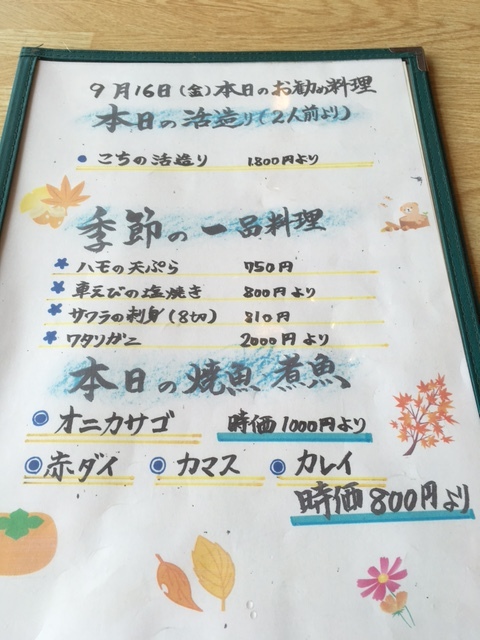 9月16日(金)本日のお勧め料理
本日の活造り(2人前より)
こちの活造り 1800円より
季節の一品料理
ハモの天ぷら 750円
車えびの塩焼き 800円より
サワラの刺身(8切) 810円
ワタリガニ 2000円より
本日の焼魚 煮魚
オニカサゴ 時価1000円より
赤ダイ カマス カレイ
時価800円より